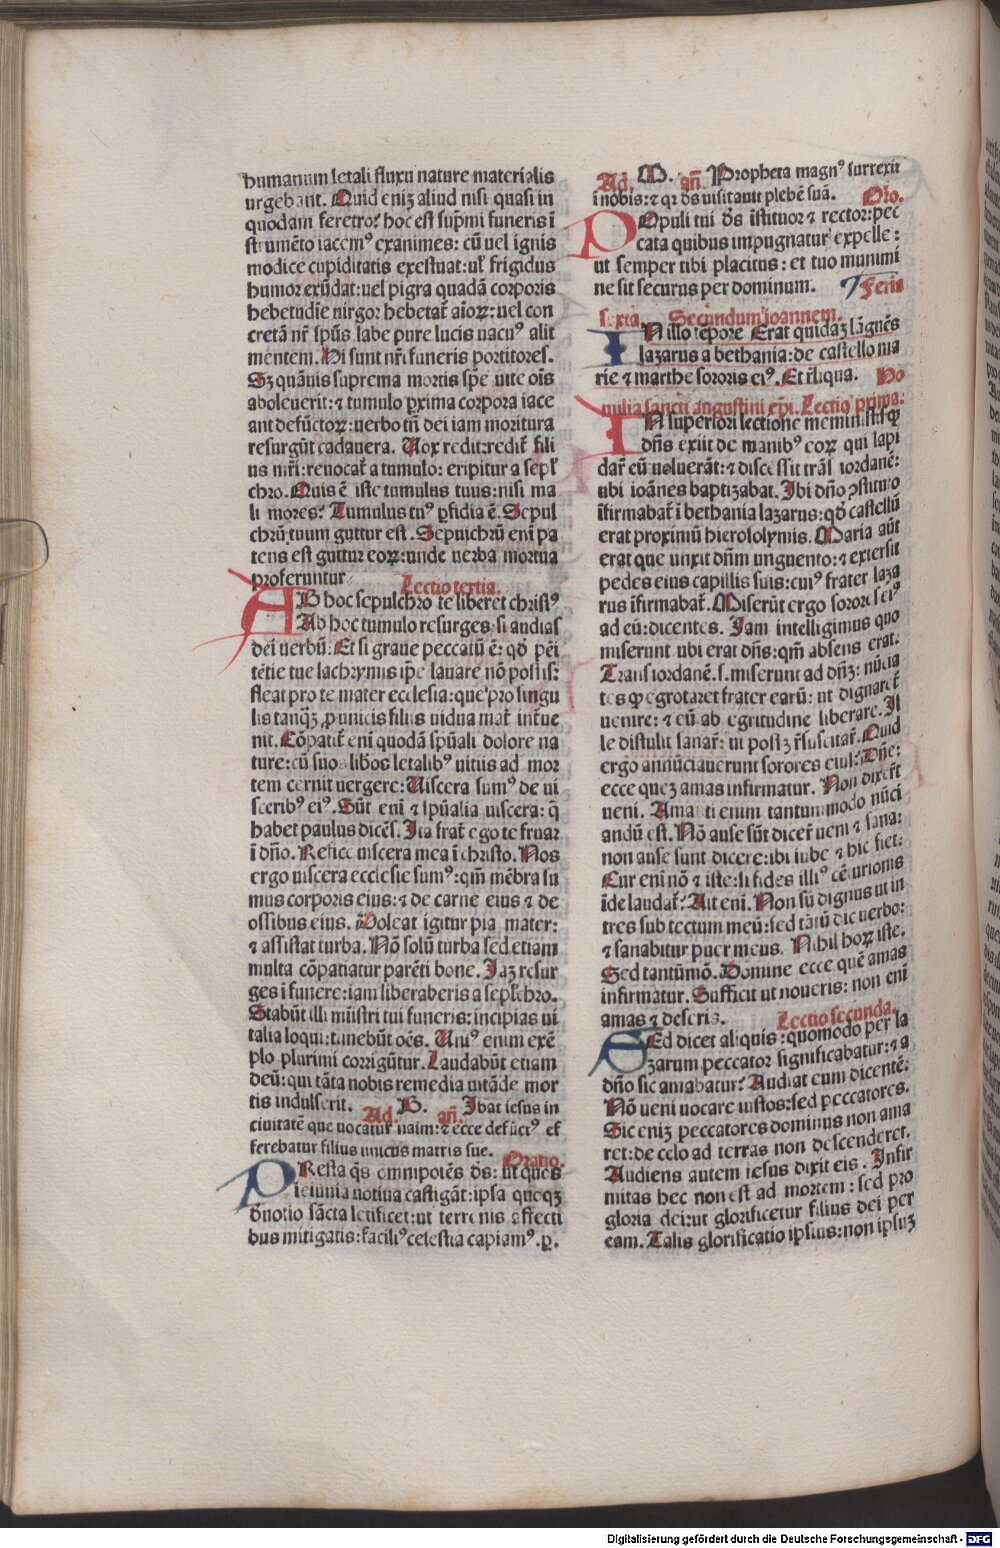 humanum letali fluxu nature materialis
urgebant. Quid eniʒ aliud nisi quasi in
quodam feretro: hoc est sup̄mi funeris i
strumēto iacemꝰ exanimes: cū uel ignis
modice cupiditatis exestuat: ul̄ frigidus
humor exūdat: uel pigra quadā corporis
hebetudīe uigor hebetat̄ aīoꝝ: uel con
cretā nr̄ sp̄us labe pure lucis uacuꝰ alit
mentem. Hi sunt nr̄i funeris portitores.
Sʒ quāuis suprema mortis sp̄e uite oīs
aboleuerit: ⁊ tumulo ꝓxima corpora iace
ant defūctoꝝ: uerbo tn̄ dei iam moritura
resurgūt cadauera. Uox redit: redit̄ fili
us mr̄i: reuocat̄ a tumulo: eripitur a sepl̄
chro. Quis ē iste tumulus tuus: nisi ma
li mores? Tumulus tuꝰ ꝑfidia ē. Sepul
chrū tuum guttur est. Sepulchrū eni pa
tens est guttur eoꝝ: unde uerba mortua
proferuntur Lectio tertia.
AB hoc sepulchro te liberet christꝰ
Ab hoc tumulo resurges: si audias
dei uerbū. Et si graue peccatū ē: qd̄ pēi
tētie tue lachrymis ip̄e lauare nō possis:
fleat pro te mater ecclesia: que pro singu
lis tanqʒ ꝓ unicis filiis uidua mat̄ int̄ue
nit. Cōpatit̄ eni quodā sp̄uali dolore na
ture: cū suos liƀos letalibꝰ uitiis ad mor
tem cernit uergere: Uiscera sumꝰ de ui
sceribꝰ eiꝰ. Sūt eni ⁊ sp̄ualia uiscera: q̄
habet paulus dicēs. Ita frat̄ ego te fruar
ī dn̄o. Refice uiscera mea ī christo. Nos
ergo uiscera ecclesie sumꝰ: qm̄ mēbra su
mus corporis eius: ⁊ de carne eius ⁊ de
ossibus eius. Doleat igitur pia mater:
⁊ assistat turba. Nō solū turba sed etiam
multa cōpatiatur parēti bone. Iaʒ resur
ges ī funere: iam liberaberis a sepl̄chro.
Stabūt illi mīstri tui funeris: incipias ui
talia loqui: timebūt oēs. Uniꝰ enim exē
plo plurimi corrigūtur. Laudabūt etiam
deū: qui tāta nobis remedia uitāde mor
tis indulserit. Ad. B. an̄. Ibat iesus in
ciuitatē que uocatur naim: ⁊ ecce defūctꝰ ef
ferebatur filius unicus matris sue. Oratio.
PResta qs omnipotēs ds: ut ques
ieiunia uotiua castigāt: ipsa quoqʒ
duotio sācta letificet: ut terrenis affecti
bus mitigatis: faciliꝰ celestia capiamꝰ. ꝑ.
Ad. M. an̄. Propheta magnꝰ surrexit
ī nobis: ⁊ qr ds uisitauit plebē suā. Oro.
POpuli tui ds īstitutor ⁊ rector: pec
cata quibus impugnatur expelle:
ut semper tibi placitus: et tuo munimi
ne sit securus per dominum. Feria
sexta. Secundum ioannem.
IN illo tēpore Erat quidaʒ lāgnēs
lazarus a bethania: de castello ma
rie ⁊ marthe sororis eiꝰ. Et rl̄iqua. Ho
milia sancti augustini ep̄i. Lectio prima.
IN superiori lectione meministis qꝫ
dn̄s exiit de manibꝰ eoꝝ qui lapi
dar̄ eū uoluerāt: ⁊ discessit trās̄ iordanē:
ubi ioānes baptizabat. Ibi dn̄o ꝯstituto
īfirmabat̄ ī bethania lazarus: qd̄ castellū
erat proximū hierosolymis. Maria aūt
erat que unxit dn̄m unguento: ⁊ extersit
pedes eius capillis suis: cuiꝰ frater laza
rus īfirmabat̄. Miserūt ergo sorores eiꝰ
ad eū: dicentes. Iam intelligimus quo
miserunt ubi erat dn̄s: qm̄ absens erat.
Trans iordanē. s. miserunt ad dn̄ʒ: nūcia
tes ꝙ egrotaret frater earū: ut dignaret̄
uenire: ⁊ eū ab egritudine liberare. Il
le distulit sanar̄: ut possʒ r̄suscitar̄. Quid
ergo annūciauerunt sorores eius? Dn̄e:
ecce queʒ amas infirmatur. Non dixer̄t
ueni. Amanti enim tantummodo nūci
andū est. Nō ause sūt dicer̄ ueni ⁊ sana:
non ause sunt dicere: ibi iube ⁊ hic fiet:
Cur eni nō ⁊ iste: si fides illiꝰ cēturionis
īde laudat̄? Ait eni. Non sū dignus ut in
tres sub tectum meū: sed tātū dic uerbo:
⁊ sanabitur puer meus. Nihil hoꝝ iste.
Sed tantūmō. Domine ecce quē amas
infirmatur. Sufficit ut noueris: non eni
amas ⁊ deseris. Lectio secunda.
SEd dicet aliquis: quomodo per la
zarum peccator significabatur: ⁊ a
dn̄o sic amabatur? Audiat eum dicentē:
Nō ueni uocare iustos: sed peccatores.
Sic eniʒ peccatores dominus non ama
ret: de celo ad terras non descenderet.
Audiens autem iesus dixit eis. Infir
mitas hec non est ad mortem: sed pro
gloria dei: ut glorificetur filius dei per
eam. Talis glorificatio ipsius: non ipsuʒ
Digitalisierung gefördert durch die Deutsche Forschungsgemeinschaft - DFG